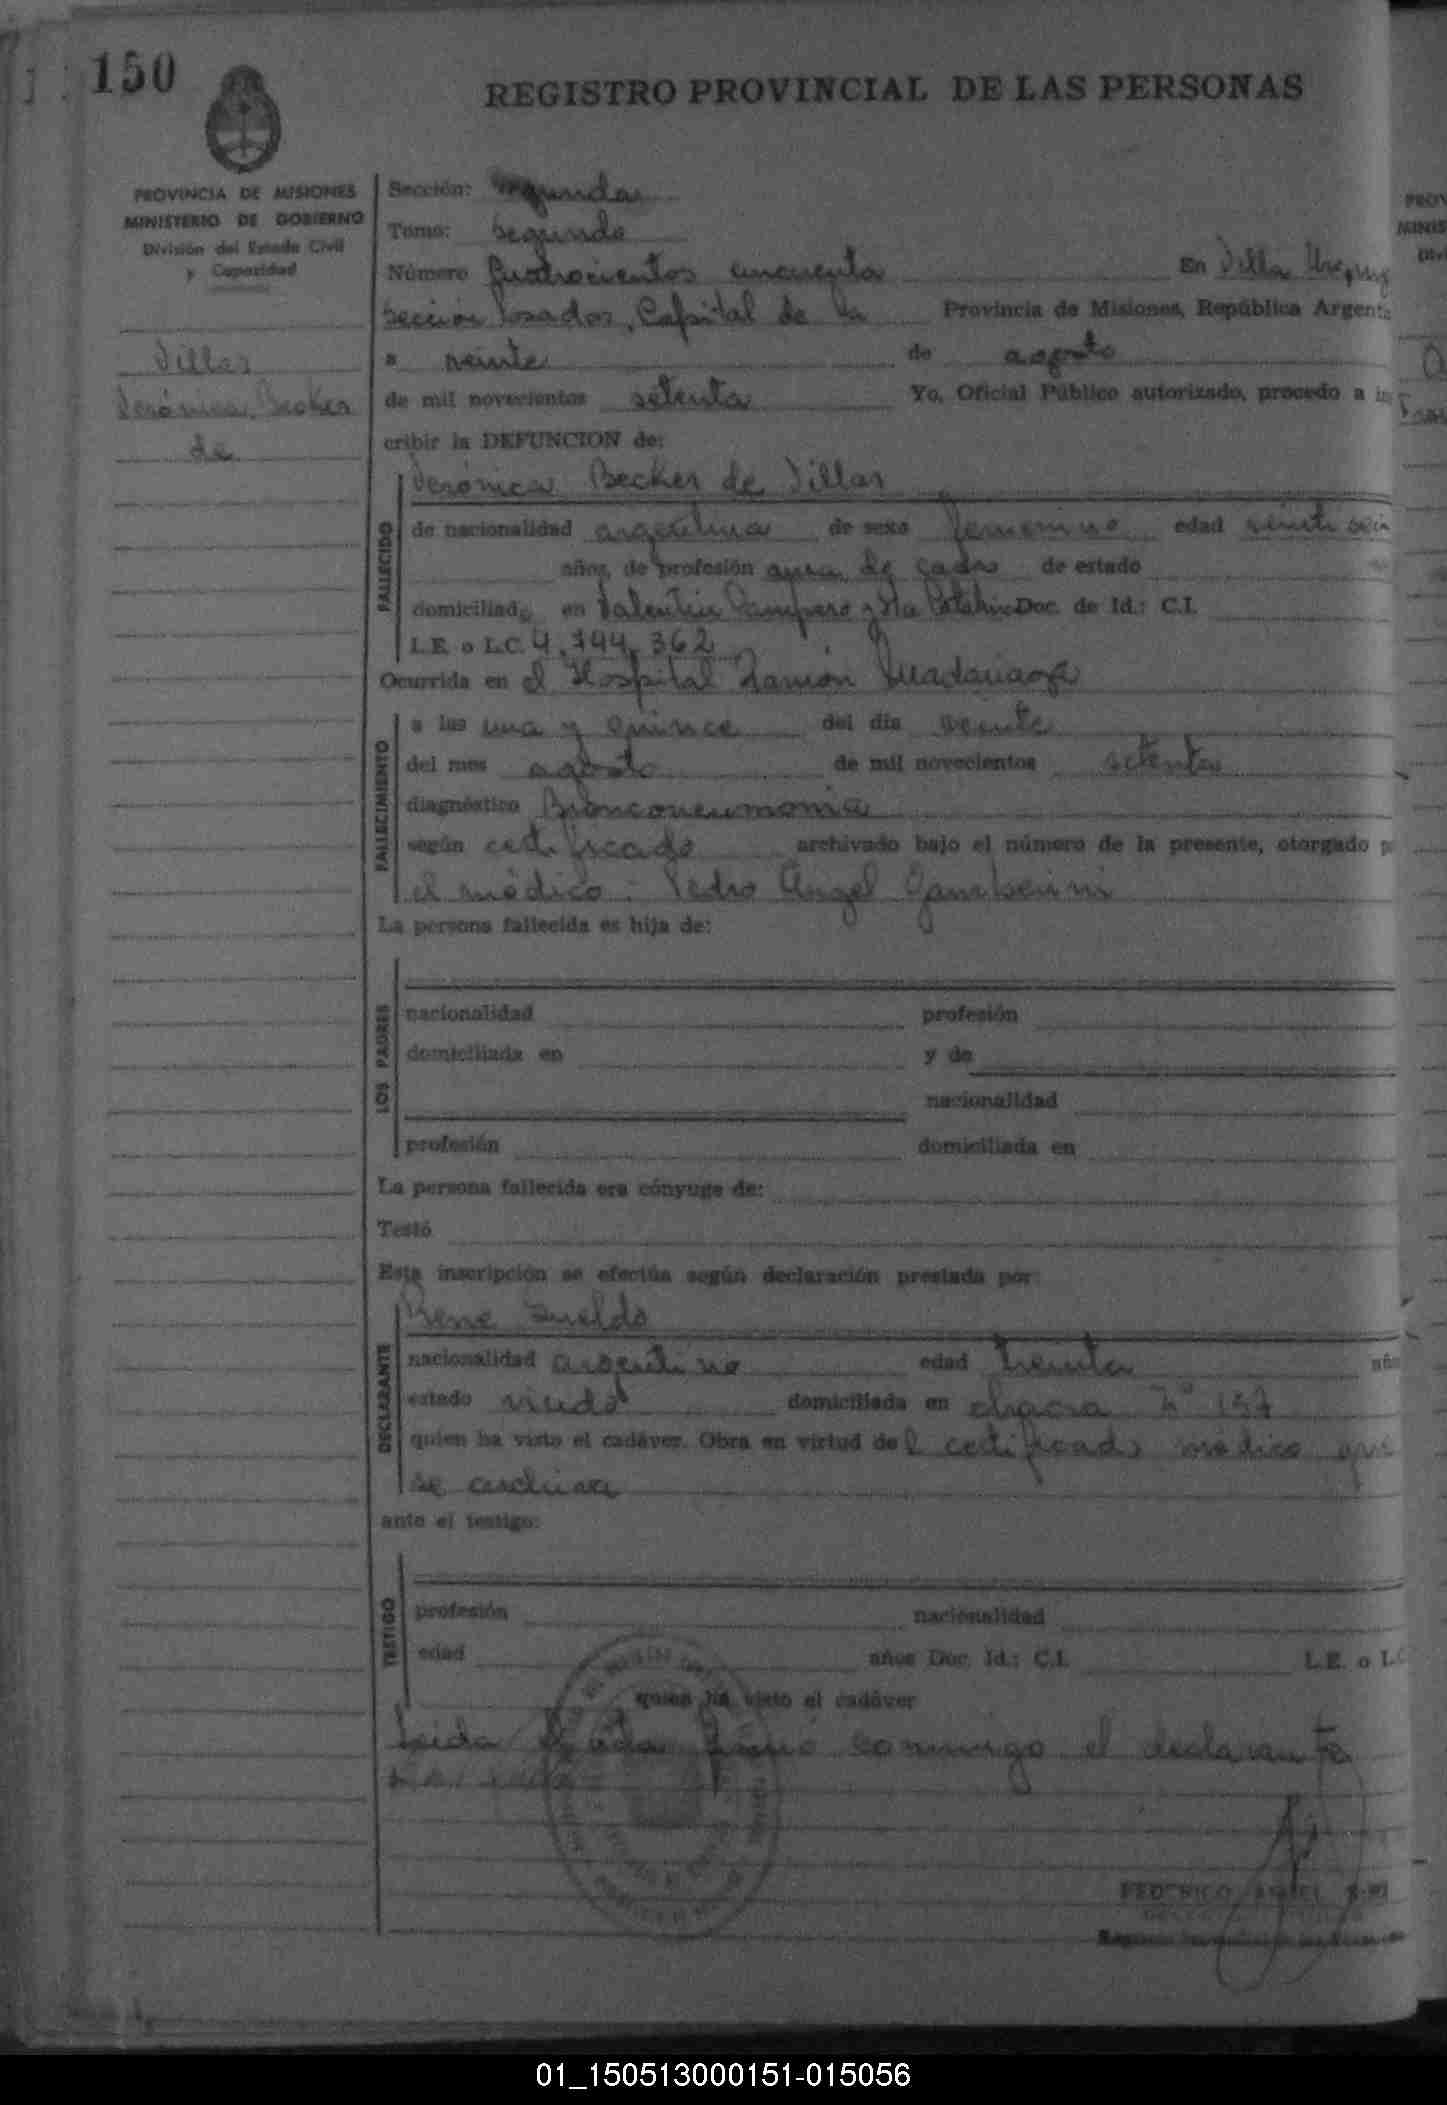 150
REGISTRO PROVINCIAL DE LAS PERSONAS
PROVINCIA DE MISIONES
MINISTERIO DE GOBIERNO
División del Estado Civil
y Capacidad
Villar
Verónica Becker
de
Sección: segunda
Tomo: segundo
Número cuatrocientos cincuenta En Villa Urquiza
Sección Posadas, Capital de la Provincia de Misiones, República Argent
a veinte de agosto
de mil novecientos setenta Yo, Oficial Público autorizado, procedo a in
cribir la DEFUNCION de:
FALLECIDO
Verónica Becker de Villar
de nacionalidad argentina de sexo femenino edad veinti seis
años, de profesión ama de casa de estado
domiciliada en Valentín y Sta Catalina Doc. de Id.: C.I.
L.E. o L.C. 4.744.362
Ocurrida en el Hospital Ramón Madariaga
FALLECIMIENTO
a las una y quince del día veinte
del mes agosto de mil novecientos setenta
diagnóstico Bronconeumonia
según certificado archivado bajo el número de la presente, otorgado p
el médico: Pedro Angel
La persona fallecida es hija de:
LOS PADRES
nacionalidad profesión
domiciliada en y de
nacionalidad
profesión domiciliada en
La persona fallecida era cónyuge de:
Testó
Esta inscripción se efectúa según declaración prestada por:
DECLARANTE
Rene Sueldo
nacionalidad argentino edad treinta año
estado viudo domiciliada en chacra Nº 157
quien ha visto el cadáver. Obra en virtud del certificado médico que
se archiva
ante el testigo:
TESTIGO
profesión nacionalidad
edad años Doc. Id.: C.I. L.E. o L.C
quien ha visto el cadáver
Leida el acta firmó conmigo el declarante
FEDERICO
01_150513000151-015056